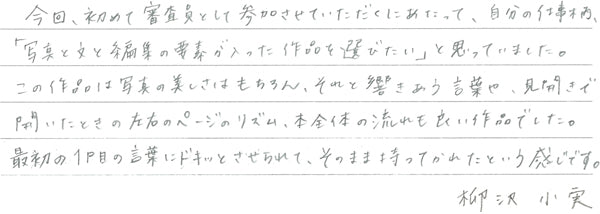 今回、初めて審査員として参加させていただくにあたって、自分の仕事柄、
「写真と文と編集の要素が入った作品を選びたい」と思っていました。
この作品は写真の美しさはもちろん、それと響きあう言葉や、見開きで
開いたときの左右のページのリズム、本全体の流れも良い作品でした。
最初の1P目の言葉にドキッとさせられて、そのまま持ってかれたという感じです。
柳沢 小実